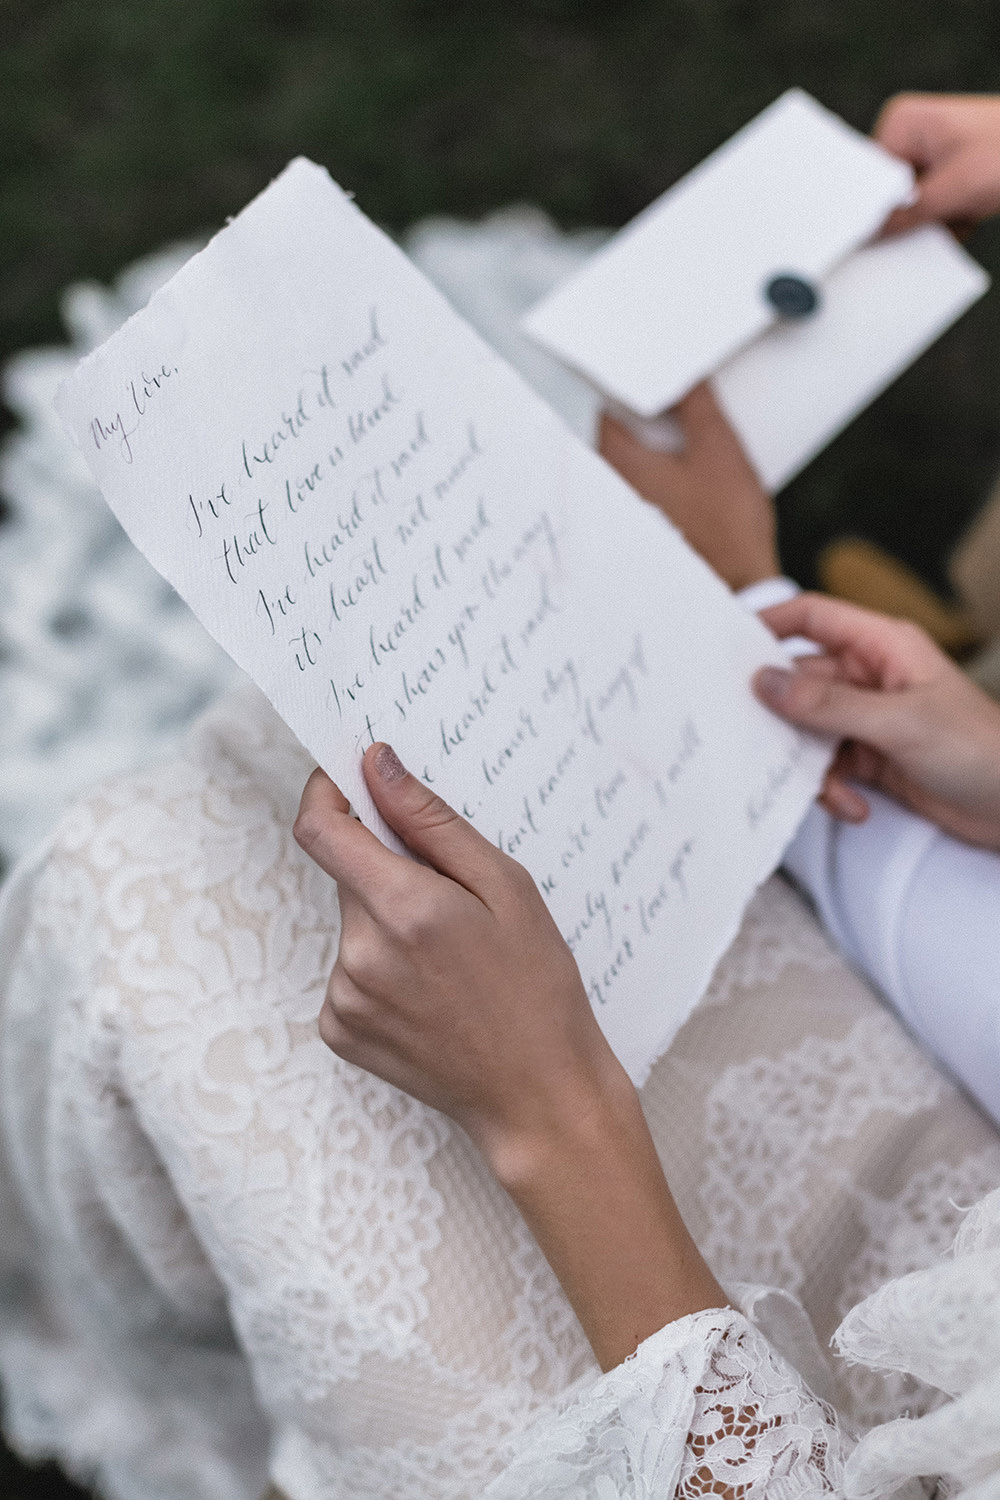 My love,
I've heard it said
that love is blind
I've heard it said
it's heart not mind
I've heard it said
it shows you the way
heard it said
don't know if
are true
only know I will
love you